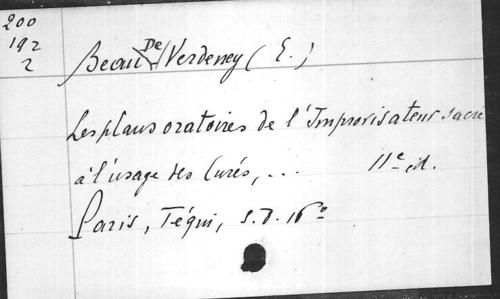 200
192
2
Beau De Verdeney (E.)
Les plans oratoires de l'Improvisateur sacré
à l'usage des Curés, ... 11e éd.
Paris, Téqui, s.d. 16°